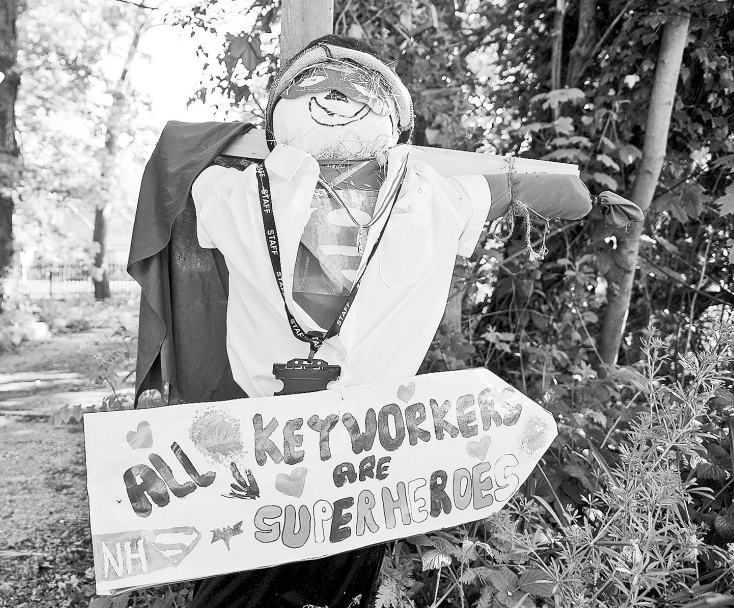 STAFF
STAFF
STAFF
STAFF
STAFF
ALL KEYWORKERS
ARE
SUPERHEROES
NHS